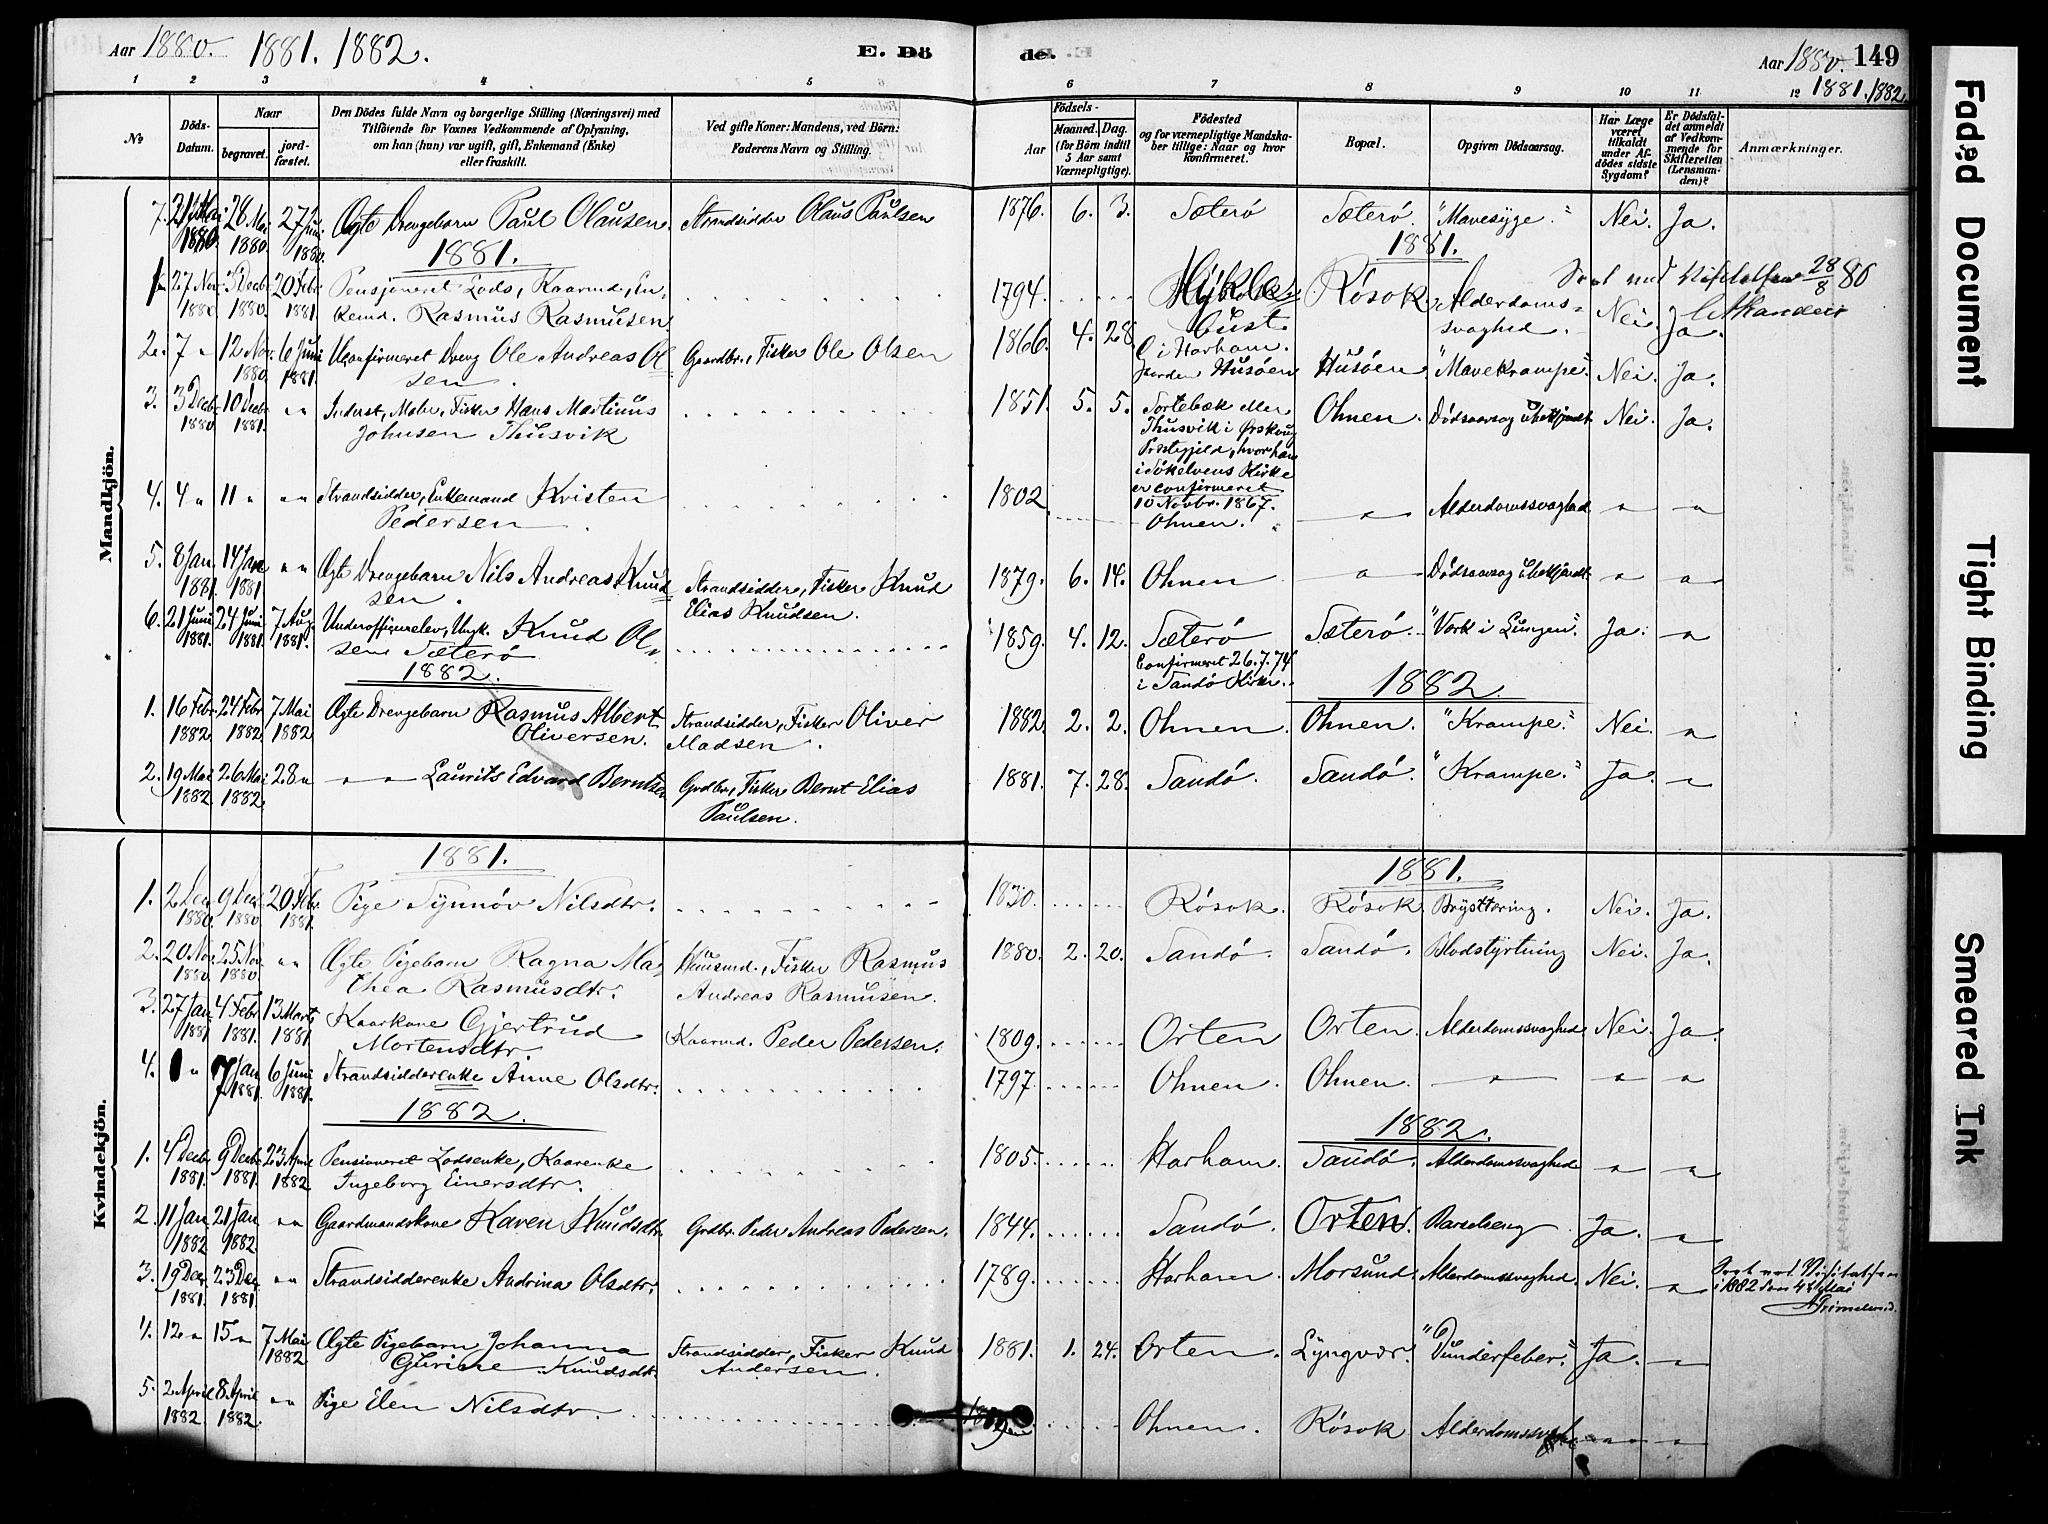 Aar 1880. 1881. 1882. E. Dö
de. Aar 1880. 149
1881. 1882
1 2 3 4 5
6 7 8 9 10 11 12
№ Döds-Datum. Naar begravet. jordfæstet.
Den Dödes fulde Navn og borgerlige Stilling (Næringsvei) med
Tilföiende for Voxnes Vedkommende af Oplysning,
om han (hun) var ugift, gift, Enkemand (Enke)
eller fraskilt.
Ved gifte Koner: Mandens, ved Börn:
Faderens Navn og Stilling.
Födsels-
Aar Maaned. Dag.
(for Börn indtil
5 Aar samt
Værnepligtige).
Födested
og for værnepligtige Mandska-
ber tillige: Naar og hvor
konfirmeret.
Bopæl.
Opgiven Dödsaarsag.
Har Læge
været
tilkaldt
under Af-
dödes sidste
Sygdom?
Er Dödsfal-
det anmeldt
af Vedkom-
mende for
Skifteretten
(Lensman-
den)?
Anmærkninger.
Mandkjön.
7. 21 Mai 1880. 28 Mai 1880. 27 Juni 1880. Ægte Drengebarn Paul Olausen. Strandsidder Olaus Paulsen 1876. 6. 3. Sæterö Sæterö. "Mavesyge." Nei. Ja.
1881. 1881.
1. 27 Nov. 1880. 3 Decbr. 1880. 20 Febr. 1881. Pensjoneret Lods, Kaarmd., En-
kemd. Rasmus Rasmusen. 1794. Rösok. Alderdoms-
svaghed. Nei. Ja. 28/8 80
2. 7 " 12 Nov. 1880. 6 Juni 1881. Uconfirmeret Dreng Ole Andreas Ol-
sen. Gaardbr., Fisker Ole Olsen 1866. 4. 28. i Harham.
Gaarden Husöen Husöen. "Mavekrampe." Nei. Ja.
3. 3 Decbr. 1880 10 Decbr. 1881. " Inderst, Maler, Fisker Hans Martinus
Johnsen Thusvik 1851. 5. 5. Sortebæk eller
Thusvik i Ørskoug
Præstegjeld, hvor han
i Sökelvens Kirke
er confirmeret
10 Novbr. 1867. Ohnen. Dödsaarsag ubekjendt. Nei. Ja.
4. 4 " 11 " " " Strandsidder, Enkemand Kristen
Pedersen. 1802. Ohnen. " Alderdomssvaghed " "
5. 8 Jan. 1881. 14 Jan. 1881 " " Ægte Drengebarn Nils Andreas Knud-
sen. Strandsidder, Fisker Knud
Elias Knudsen. 1879. 6. 14. Ohnen " Dödsaarsag ubekjendt. " "
6. 21 Juni 1881. 24 Juni 1881. 7 Aug. 1881. Underofficerelev, Ungk. Knud Ol-
sen Sæterö 1859. 4. 12. Sæterö
Confirmeret 26.7.74
i Sandö Kirke. Sæterö. "Værk i Lungen." Ja. "
1882. 1882.
1. 16 Febr. 1882 24 Febr. 1882. 7 Mai 1882 Ægte Drengebarn Rasmus Albert
Oliversen. Strandsidder, Fisker Oliver
Madsen. 1882. 2. 2. Ohnen. Ohnen. "Krampe." Nei. "
2. 19 Mai 1882. 26 Mai 1882. 28 " " " Laurits Edvard Berntsen Grdbr., Fisker Bernt Elias
Paulsen. 1881. 7. 28. Sandö. Sandö. "Krampe." Ja. "
Kvindekjön.
1881. 1881.
1. 2 Dec. 1880. 9 Dec. 1880. 20 Febr. 1881. Pige Synnöv Nilsdtr. 1830. Rösok. Rösok. Brysttæring. Nei. Ja.
2. 20 Nov. 1880 25 Nov. 1880. " " Ægte Pigebarn Ragna Ma-
thea Rasmusdtr. Huusmd., Fisker Rasmus
Andreas Rasmusen. 1880. 2. 20. Sandö. Sandö. Blodstyrtning Nei. Ja.
3. 27 Jan. 1881 4 Febr. 1881. 13 Marts 1881. Kaarkone Gjertrud
Mortensdtr. Kaarmd. Peder Pedersen. 1809. Orten Orten. Alderdomssvaghed Nei. Ja.
4. 1 " 7 Jan. 1881. 6 Juni 1881. Strandsidderenke Anne Olsdtr. 1797. Ohnen. Ohnen. " " "
1882. 1882.
1. 4 Decbr. 1881. 9 Decbr. 1881. 23 April 1882 Pensioneret Lodsenke, Kaarenke
Ingeborg Einersdtr. 1805. Harham. Sandö. Alderdomssvaghed " "
2. 11 Jan. 1882 21 Jan. 1882. " " Gaardmandskone Karen Knudsdtr. Grdbr. Peder Andreas Pedersen. 1844. Sandö. Orten. Barselseng Ja. "
3. 19 Dec. 1881. 23 Dec. 1881. " " Strandsidderenke Andrina Olsdtr. 1789. Harham. Morsund. Alderdomssvaghed. Nei. " Seet ved Visitatsen
i 1882 den 4 Mai
4. 12 " 15 " 7 Mai 1882 Ægte Pigebarn Johanna
Gurine Knudsdtr. Strandsidder, Fisker Knud
Andersen. 1881. 1. 24. Orten. Lyngvær. "Dunderfeber." Ja. "
5. 2 April 1882. 8 April 1882. " " Pige Elen Nilsdtr. Ohnen. Rösok " "
Faded Document
Tight Binding
Smeared Ink